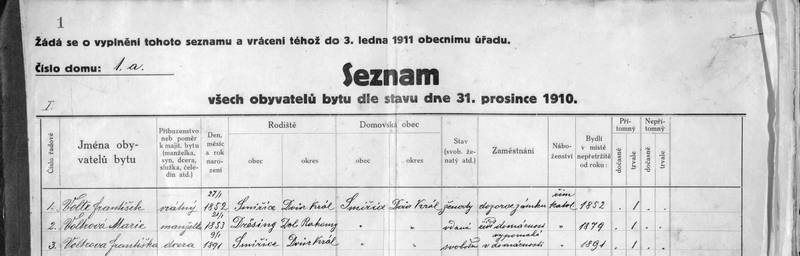 1
Žádá se o vyplnění tohoto seznamu a vrácení téhož do 3. ledna 1911 obecnímu úřadu.
Číslo domu: 1. a.
Seznam
všech obyvatelů bytu dle stavu dne 31. prosince 1910.
I.
Číslo řadové
Jména obyvatelů bytu
Příbuzenstvo neb poměr k majit. bytu (manželka, syn, dcera, služka, čeledín atd.)
Den, měsíc a rok narození
Rodiště
obec
okres
Domovská obec
obec
okres
Stav (svob. ženatý atd.)
Zaměstnání
Náboženství
Bydlí v místě nepřetržitě od roku:
Přítomný
dočasně
trvale
Nepřítomný
dočasně
trvale
1. František vrátný 1852 Smiřice Dvůr Král Smiřice Dvůr Král ženatý katol 1852 . 1 . .
2. Marie manželka 1853 " " " vdaná domácnost " 1879 . 1 . .
3. Františka dcera 1891 Smiřice Dvůr Král " " svobodná v domácnosti " 1891 . 1 . .